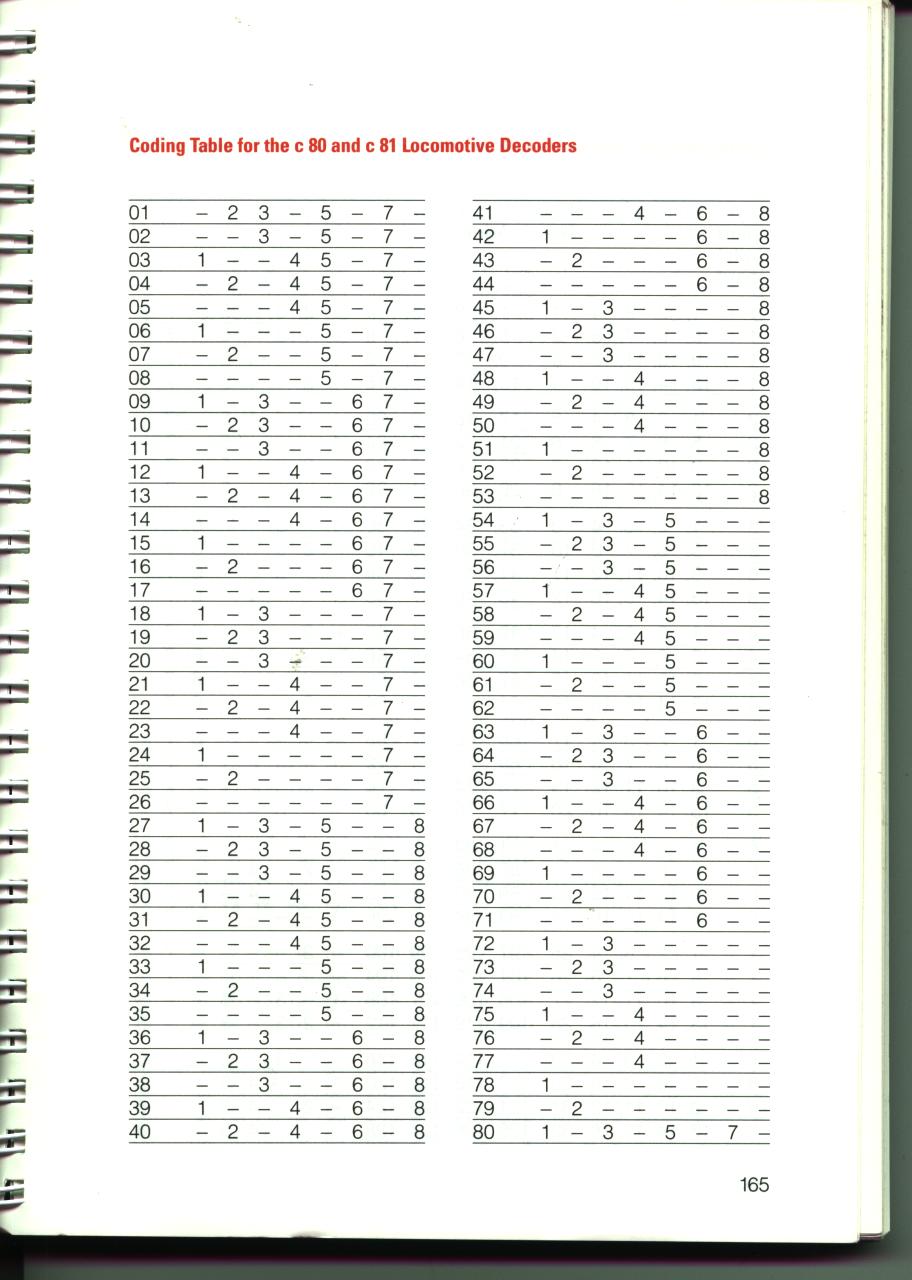 Coding Table for the c 80 and c 81 Locomotive Decoders
01 – 2 3 – 5 – 7 –
02 – – 3 – 5 – 7 –
03 1 – – 4 5 – 7 –
04 – 2 – 4 5 – 7 –
05 – – – 4 5 – 7 –
06 1 – – – 5 – 7 –
07 – 2 – – 5 – 7 –
08 – – – – 5 – 7 –
09 1 – 3 – – 6 7 –
10 – 2 3 – – 6 7 –
11 – – 3 – – 6 7 –
12 1 – – 4 – 6 7 –
13 – 2 – 4 – 6 7 –
14 – – – 4 – 6 7 –
15 1 – – – – 6 7 –
16 – 2 – – – 6 7 –
17 – – – – – 6 7 –
18 1 – 3 – – – 7 –
19 – 2 3 – – – 7 –
20 – – 3 – – – 7 –
21 1 – – 4 – – 7 –
22 – 2 – 4 – – 7 –
23 – – – 4 – – 7 –
24 1 – – – – – 7 –
25 – 2 – – – – 7 –
26 – – – – – – 7 –
27 1 – 3 – 5 – – 8
28 – 2 3 – 5 – – 8
29 – – 3 – 5 – – 8
30 1 – – 4 5 – – 8
31 – 2 – 4 5 – – 8
32 – – – 4 5 – – 8
33 1 – – – 5 – – 8
34 – 2 – – 5 – – 8
35 – – – – 5 – – 8
36 1 – 3 – – 6 – 8
37 – 2 3 – – 6 – 8
38 – – 3 – – 6 – 8
39 1 – – 4 – 6 – 8
40 – 2 – 4 – 6 – 8
41 – – – 4 – 6 – 8
42 1 – – – – 6 – 8
43 – 2 – – – 6 – 8
44 – – – – – 6 – 8
45 1 – 3 – – – – 8
46 – 2 3 – – – – 8
47 – – 3 – – – – 8
48 1 – – 4 – – – 8
49 – 2 – 4 – – – 8
50 – – – 4 – – – 8
51 1 – – – – – – 8
52 – 2 – – – – – 8
53 – – – – – – – 8
54 1 – 3 – 5 – – –
55 – 2 3 – 5 – – –
56 – – 3 – 5 – – –
57 1 – – 4 5 – – –
58 – 2 – 4 5 – – –
59 – – – 4 5 – – –
60 1 – – – 5 – – –
61 – 2 – – 5 – – –
62 – – – – 5 – – –
63 1 – 3 – – 6 – –
64 – 2 3 – – 6 – –
65 – – 3 – – 6 – –
66 1 – – 4 – 6 – –
67 – 2 – 4 – 6 – –
68 – – – 4 – 6 – –
69 1 – – – – 6 – –
70 – 2 – – – 6 – –
71 – – – – – 6 – –
72 1 – 3 – – – – –
73 – 2 3 – – – – –
74 – – 3 – – – – –
75 1 – – 4 – – – –
76 – 2 – 4 – – – –
77 – – – 4 – – – –
78 1 – – – – – – –
79 – 2 – – – – – –
80 1 – 3 – 5 – 7 –
165